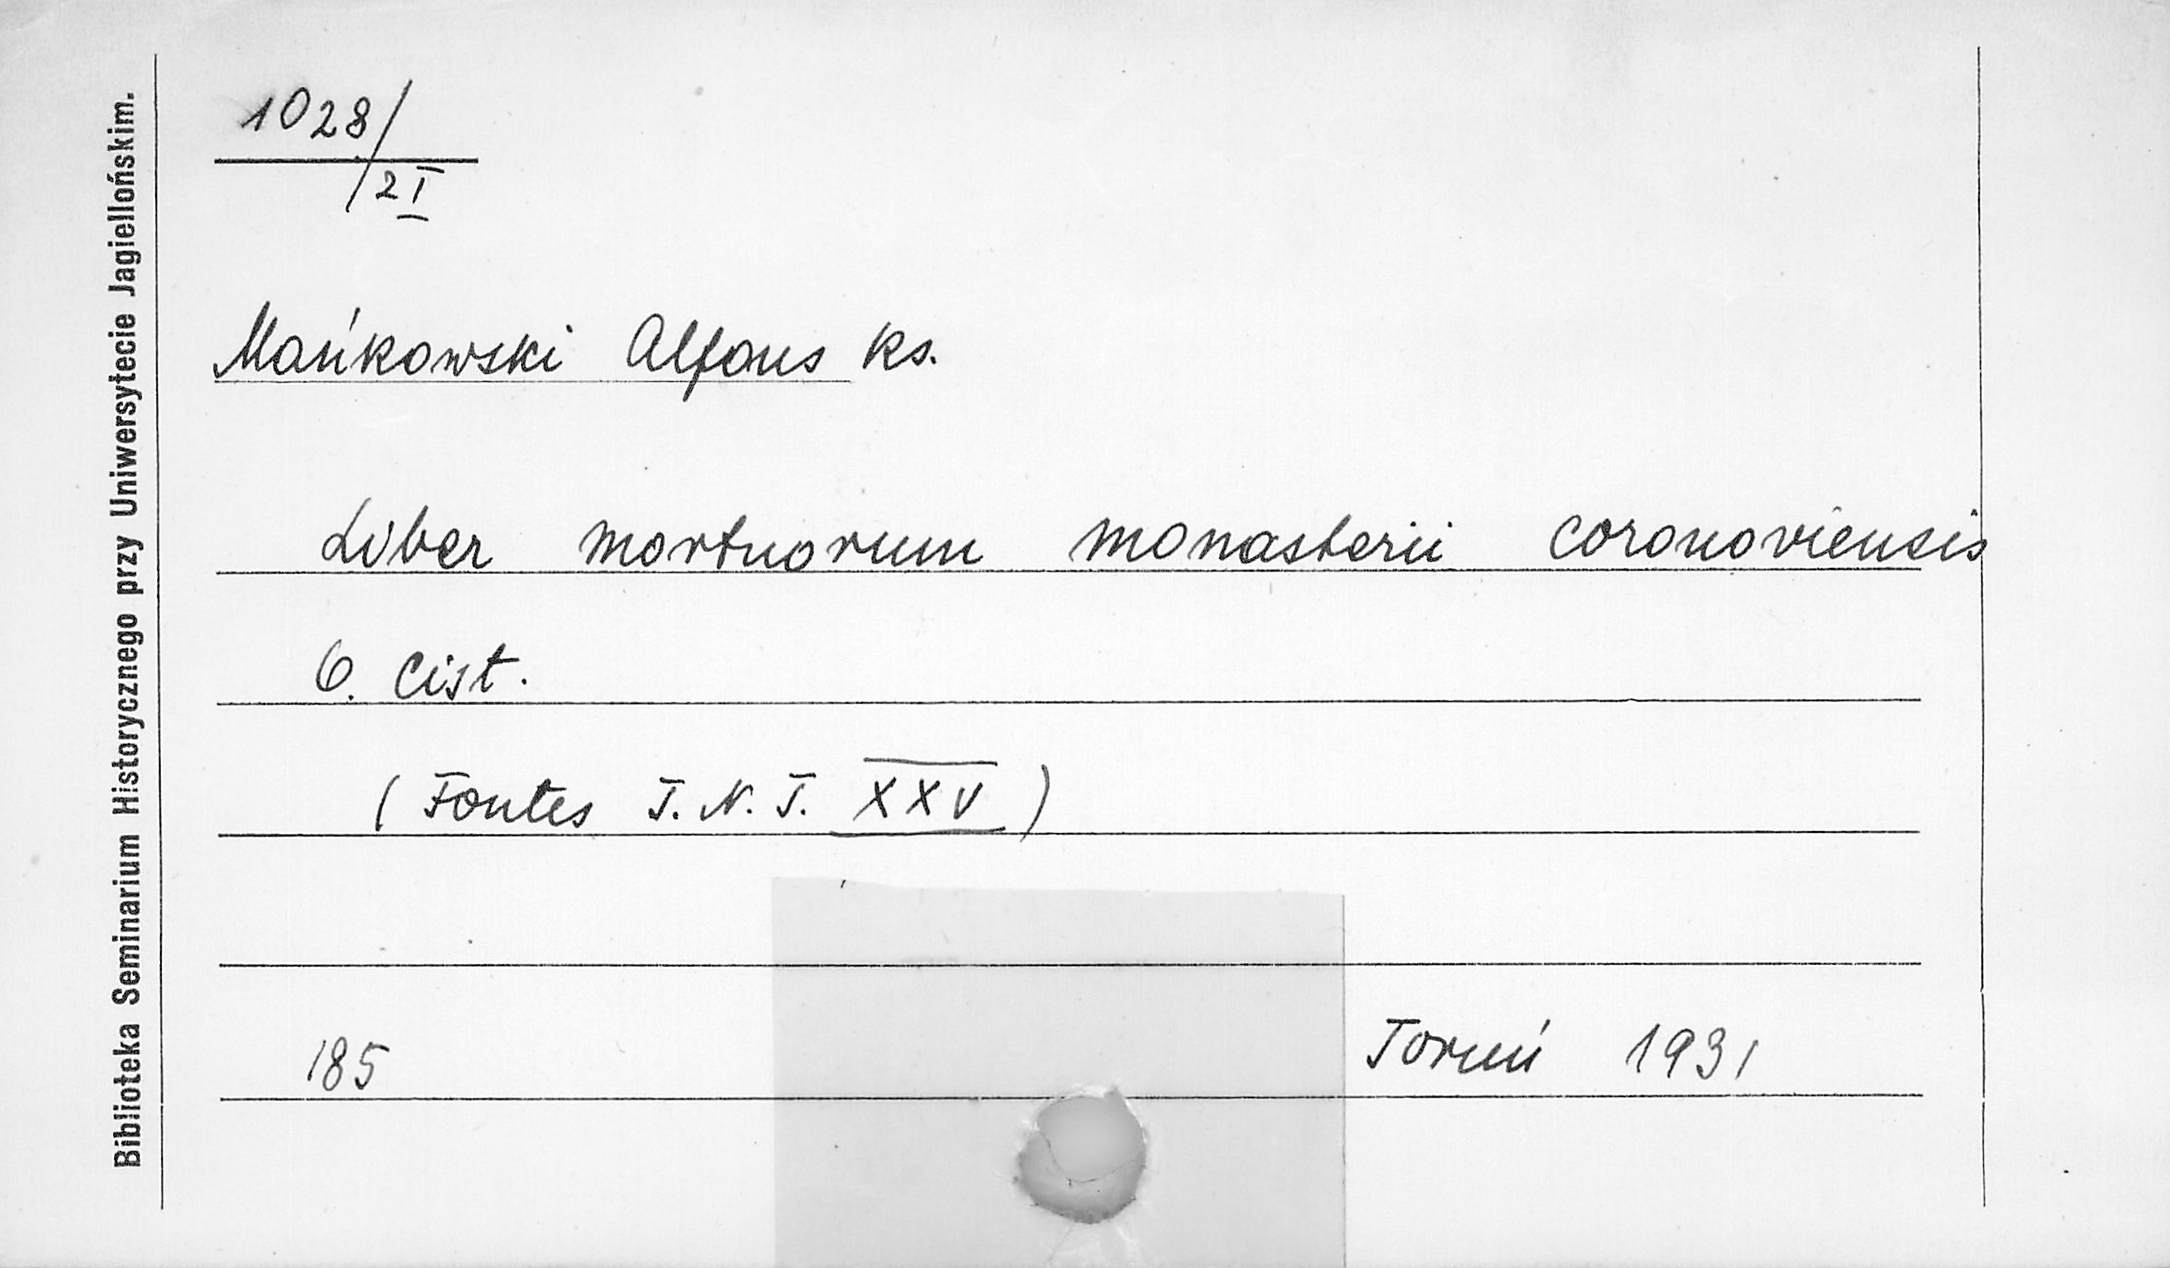 Biblioteka Seminarium Historycznego przy Uniwersytecie Jagiellońskim.
1028/
/2 I
Mańkowski Alfons ks.
Liber mortuorum monasterii coronoviensis
O. Cist.
(Fontes T. N. T. XXV)
185 Toruń 1931